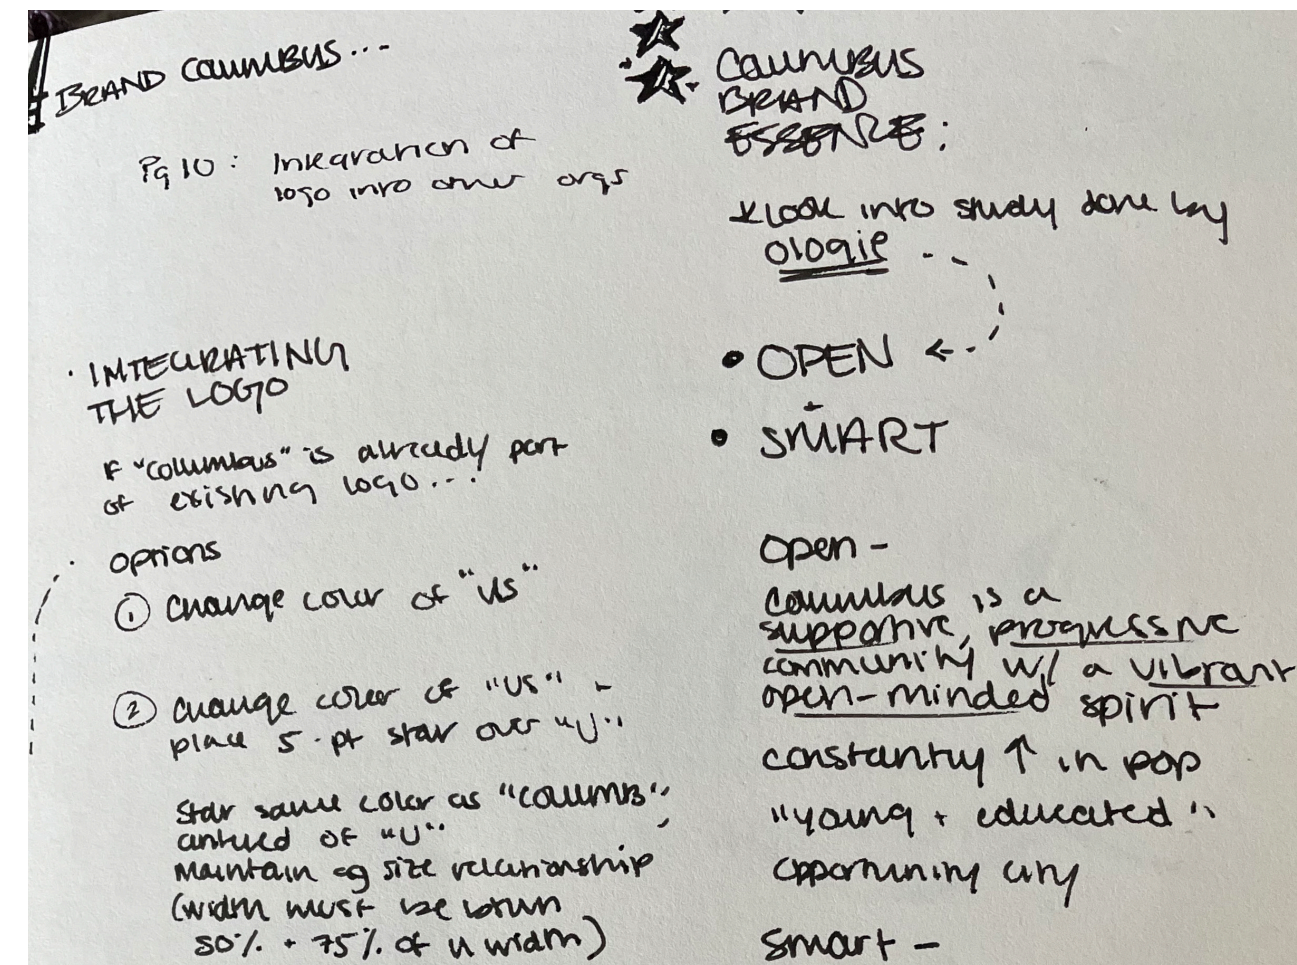 BRAND COLUMBUS...
Pg 10: Integration of
logo into other orgs
· INTEGRATING
THE LOGO
If "Columbus" is already part
of existing logo...
· options
① Change color of "US"
② Change color of "US" +
place 5-pt star over "U".
Star same color as "COLUMB",
centered of "U".
Maintain og size relationship
(width must be btwn
50% + 75% of u width)
COLUMBUS
BRAND
ESSENCE:
*Look into study done by
ologie
• OPEN ←
+
• SMART
Open -
Columbus is a
supportive, progressive
community w/ a vibrant
open-minded spirit
constantly ↑ in pop
"young + educated"
opportunity city
Smart -